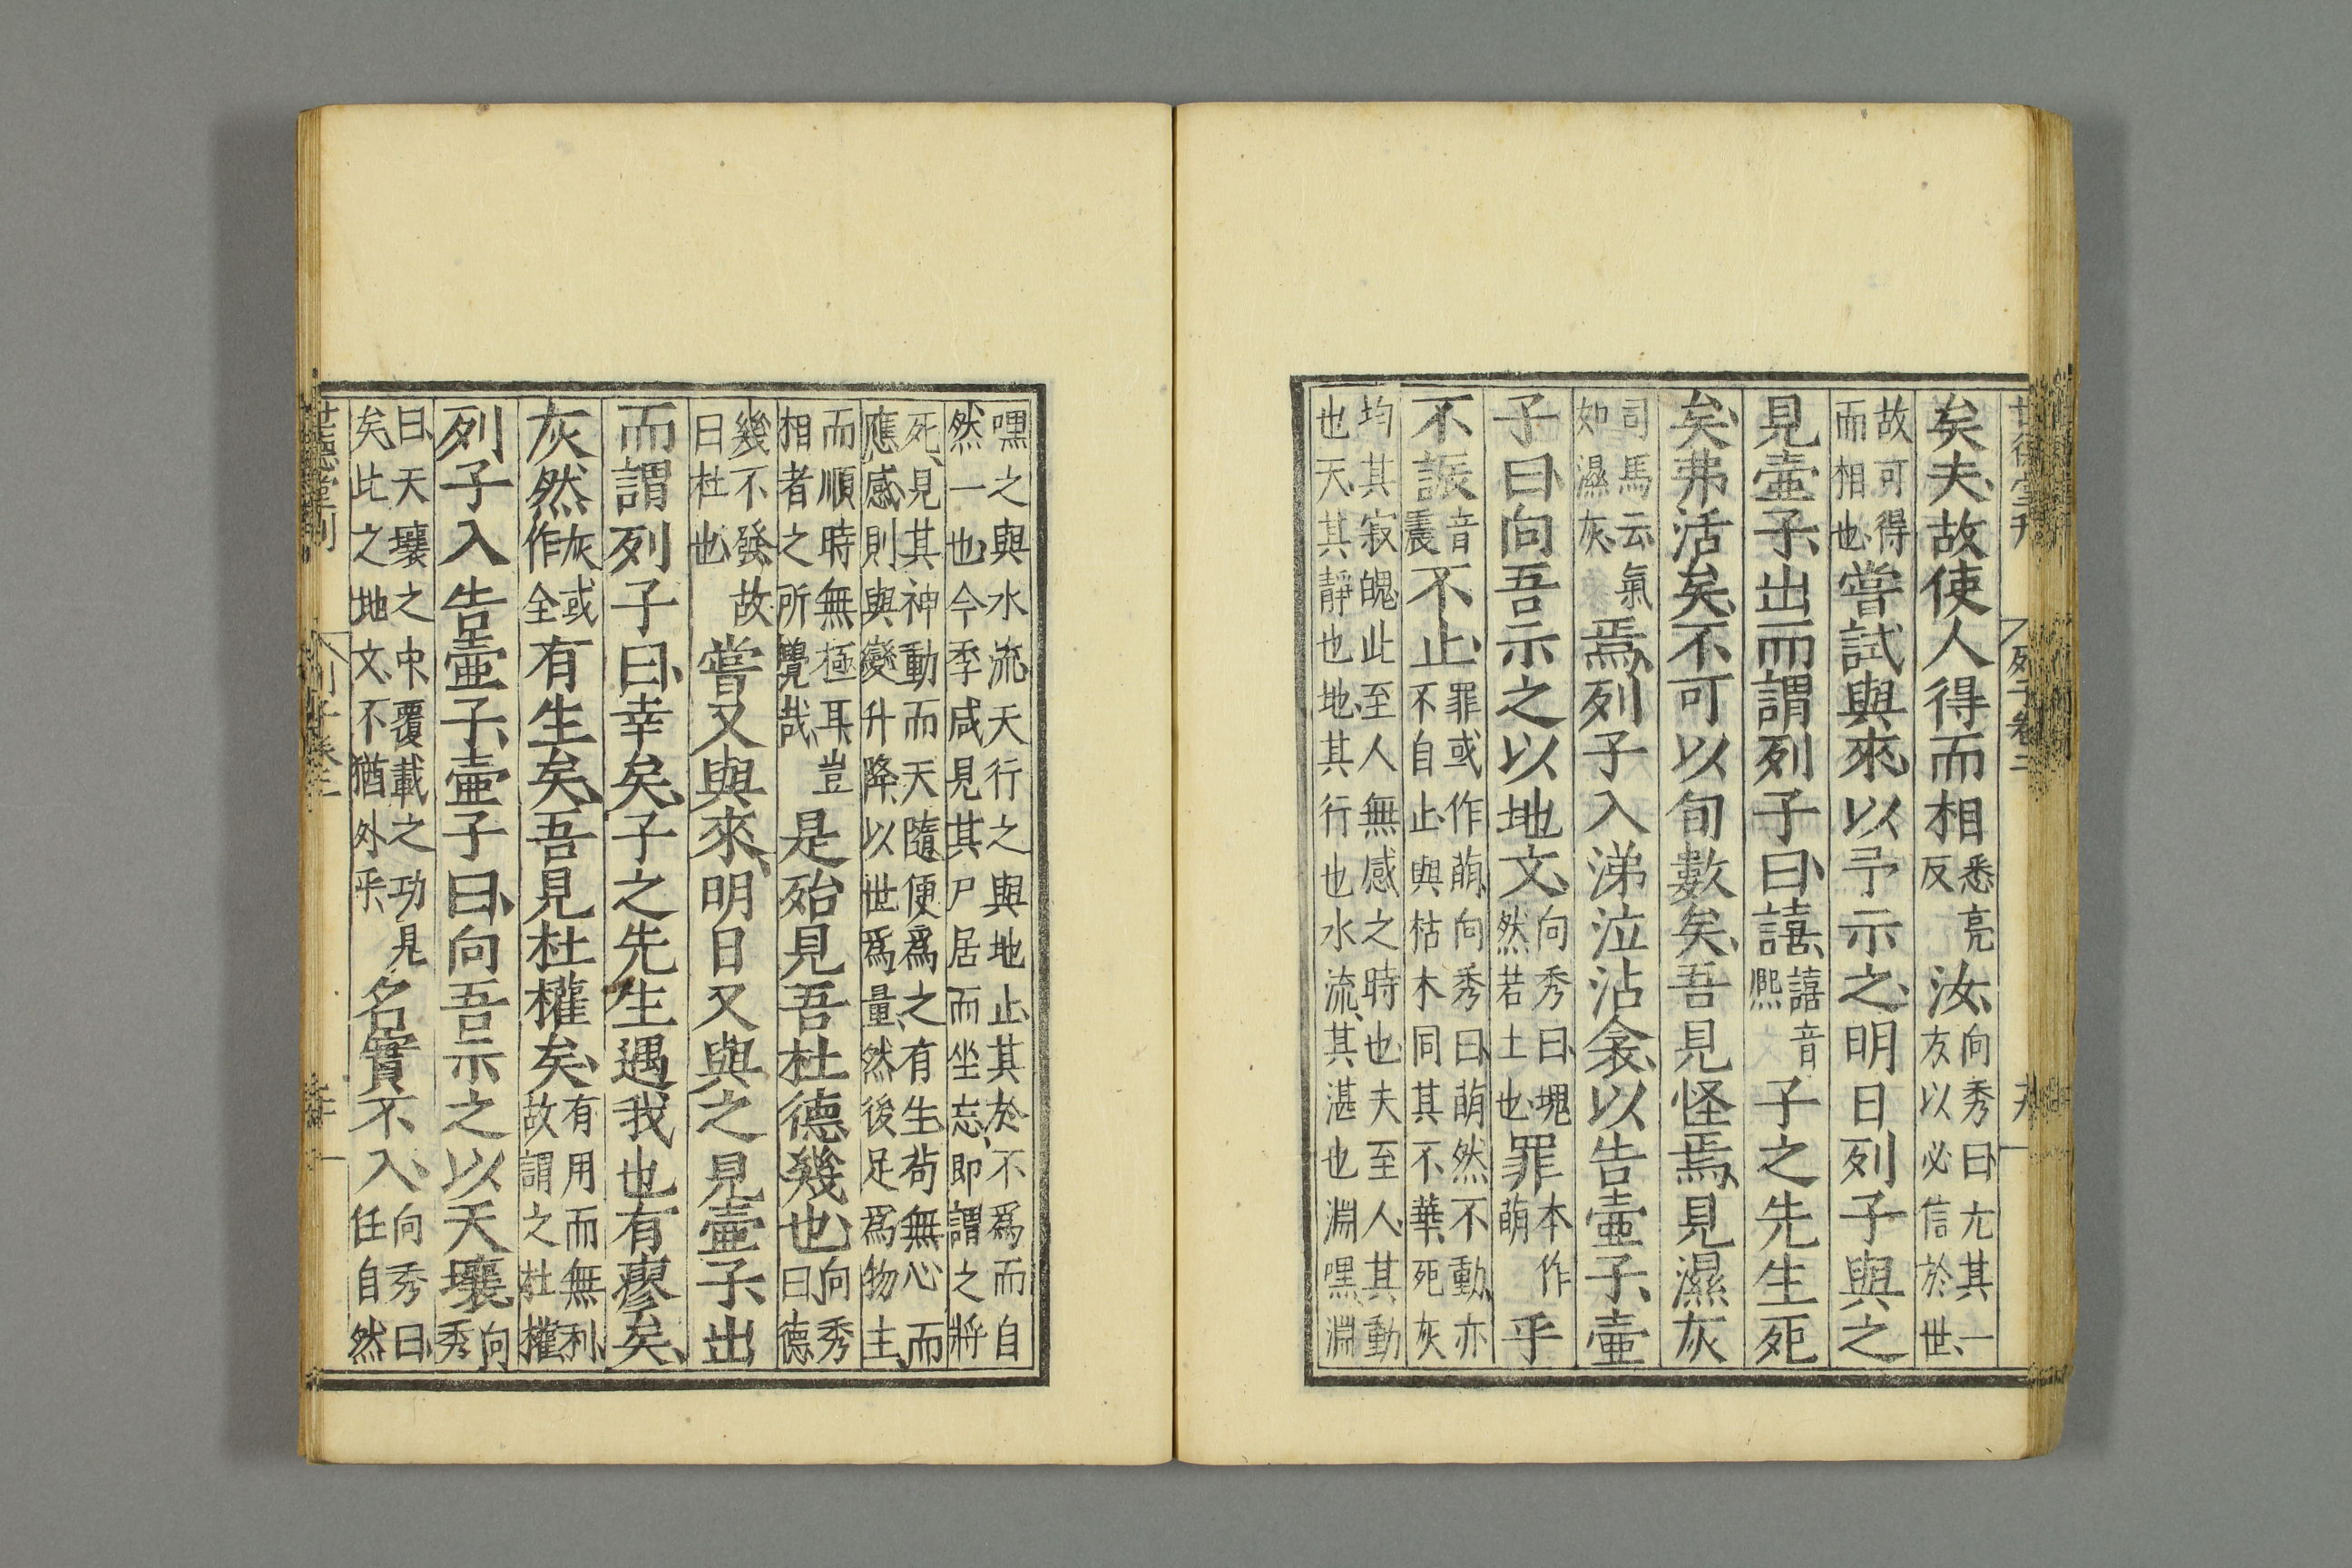 矣夫故使人得而相悉亮反汝向秀曰亢其一方以必信於世
故可得而相也嘗試與來以予示之明日列子與之
見壺子出而謂列子曰譆譆音熙子之先生死
矣弗活矣不可以旬數矣吾見怪焉見濕灰
司馬云氣如濕灰焉列子入涕泣沾衾以告壺子壺
子曰向吾示之以地文向秀曰塊然若土也罪本作萌乎
不誫音震不止罪或作萌向秀曰萌然不動亦不自止與枯木同其不華死灰
均其寂魄此至人無感之時也夫至人其動
也天其靜也地其行也水流其湛也淵嘿淵
嘿之與水流天行之與地止其於不爲而自
然一也今季咸見其尸居而坐忘即謂之將
死見其神動而天隨便爲之有生茍無心而
應感則與變升降以世爲量然後足爲物主
而順時無極耳豈相者之所覺哉是殆見吾杜德幾也向秀曰德
幾不發故曰杜也嘗又與來明日又與之見壺子出
而謂列子曰幸矣子之先生遇我也有瘳矣
灰然灰或作全有生矣吾見杜權矣有用而無利故謂之杜權
列子入告壺子壺子曰向吾示之以天壤向秀
曰天壤之中覆載之功見矣此之地文不猶外乎名實不入向秀曰任自然